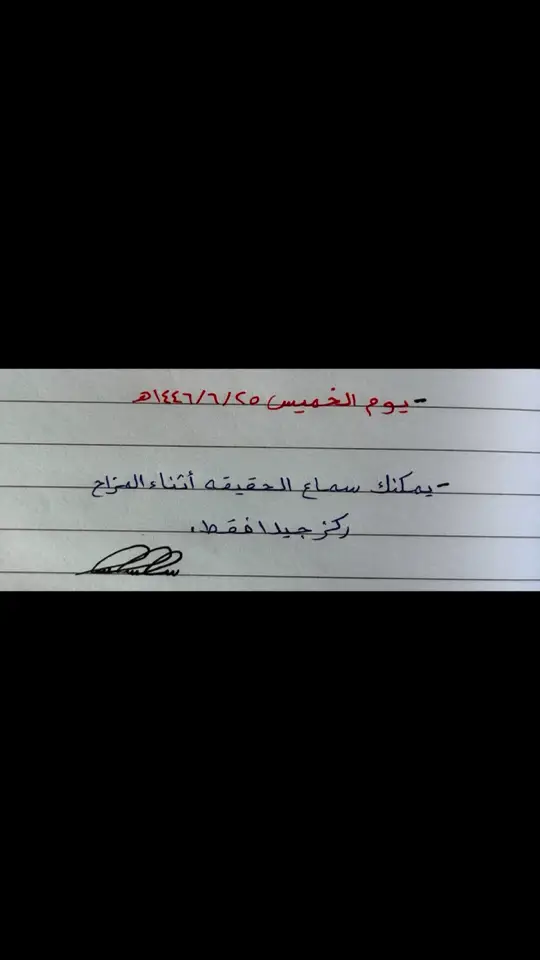 - يوم الخميس ١٤٤٦/٦/٢٥هـ
- يمكنك سماع الحقيقه أثناء المزاح
ركز جيدا فقط.